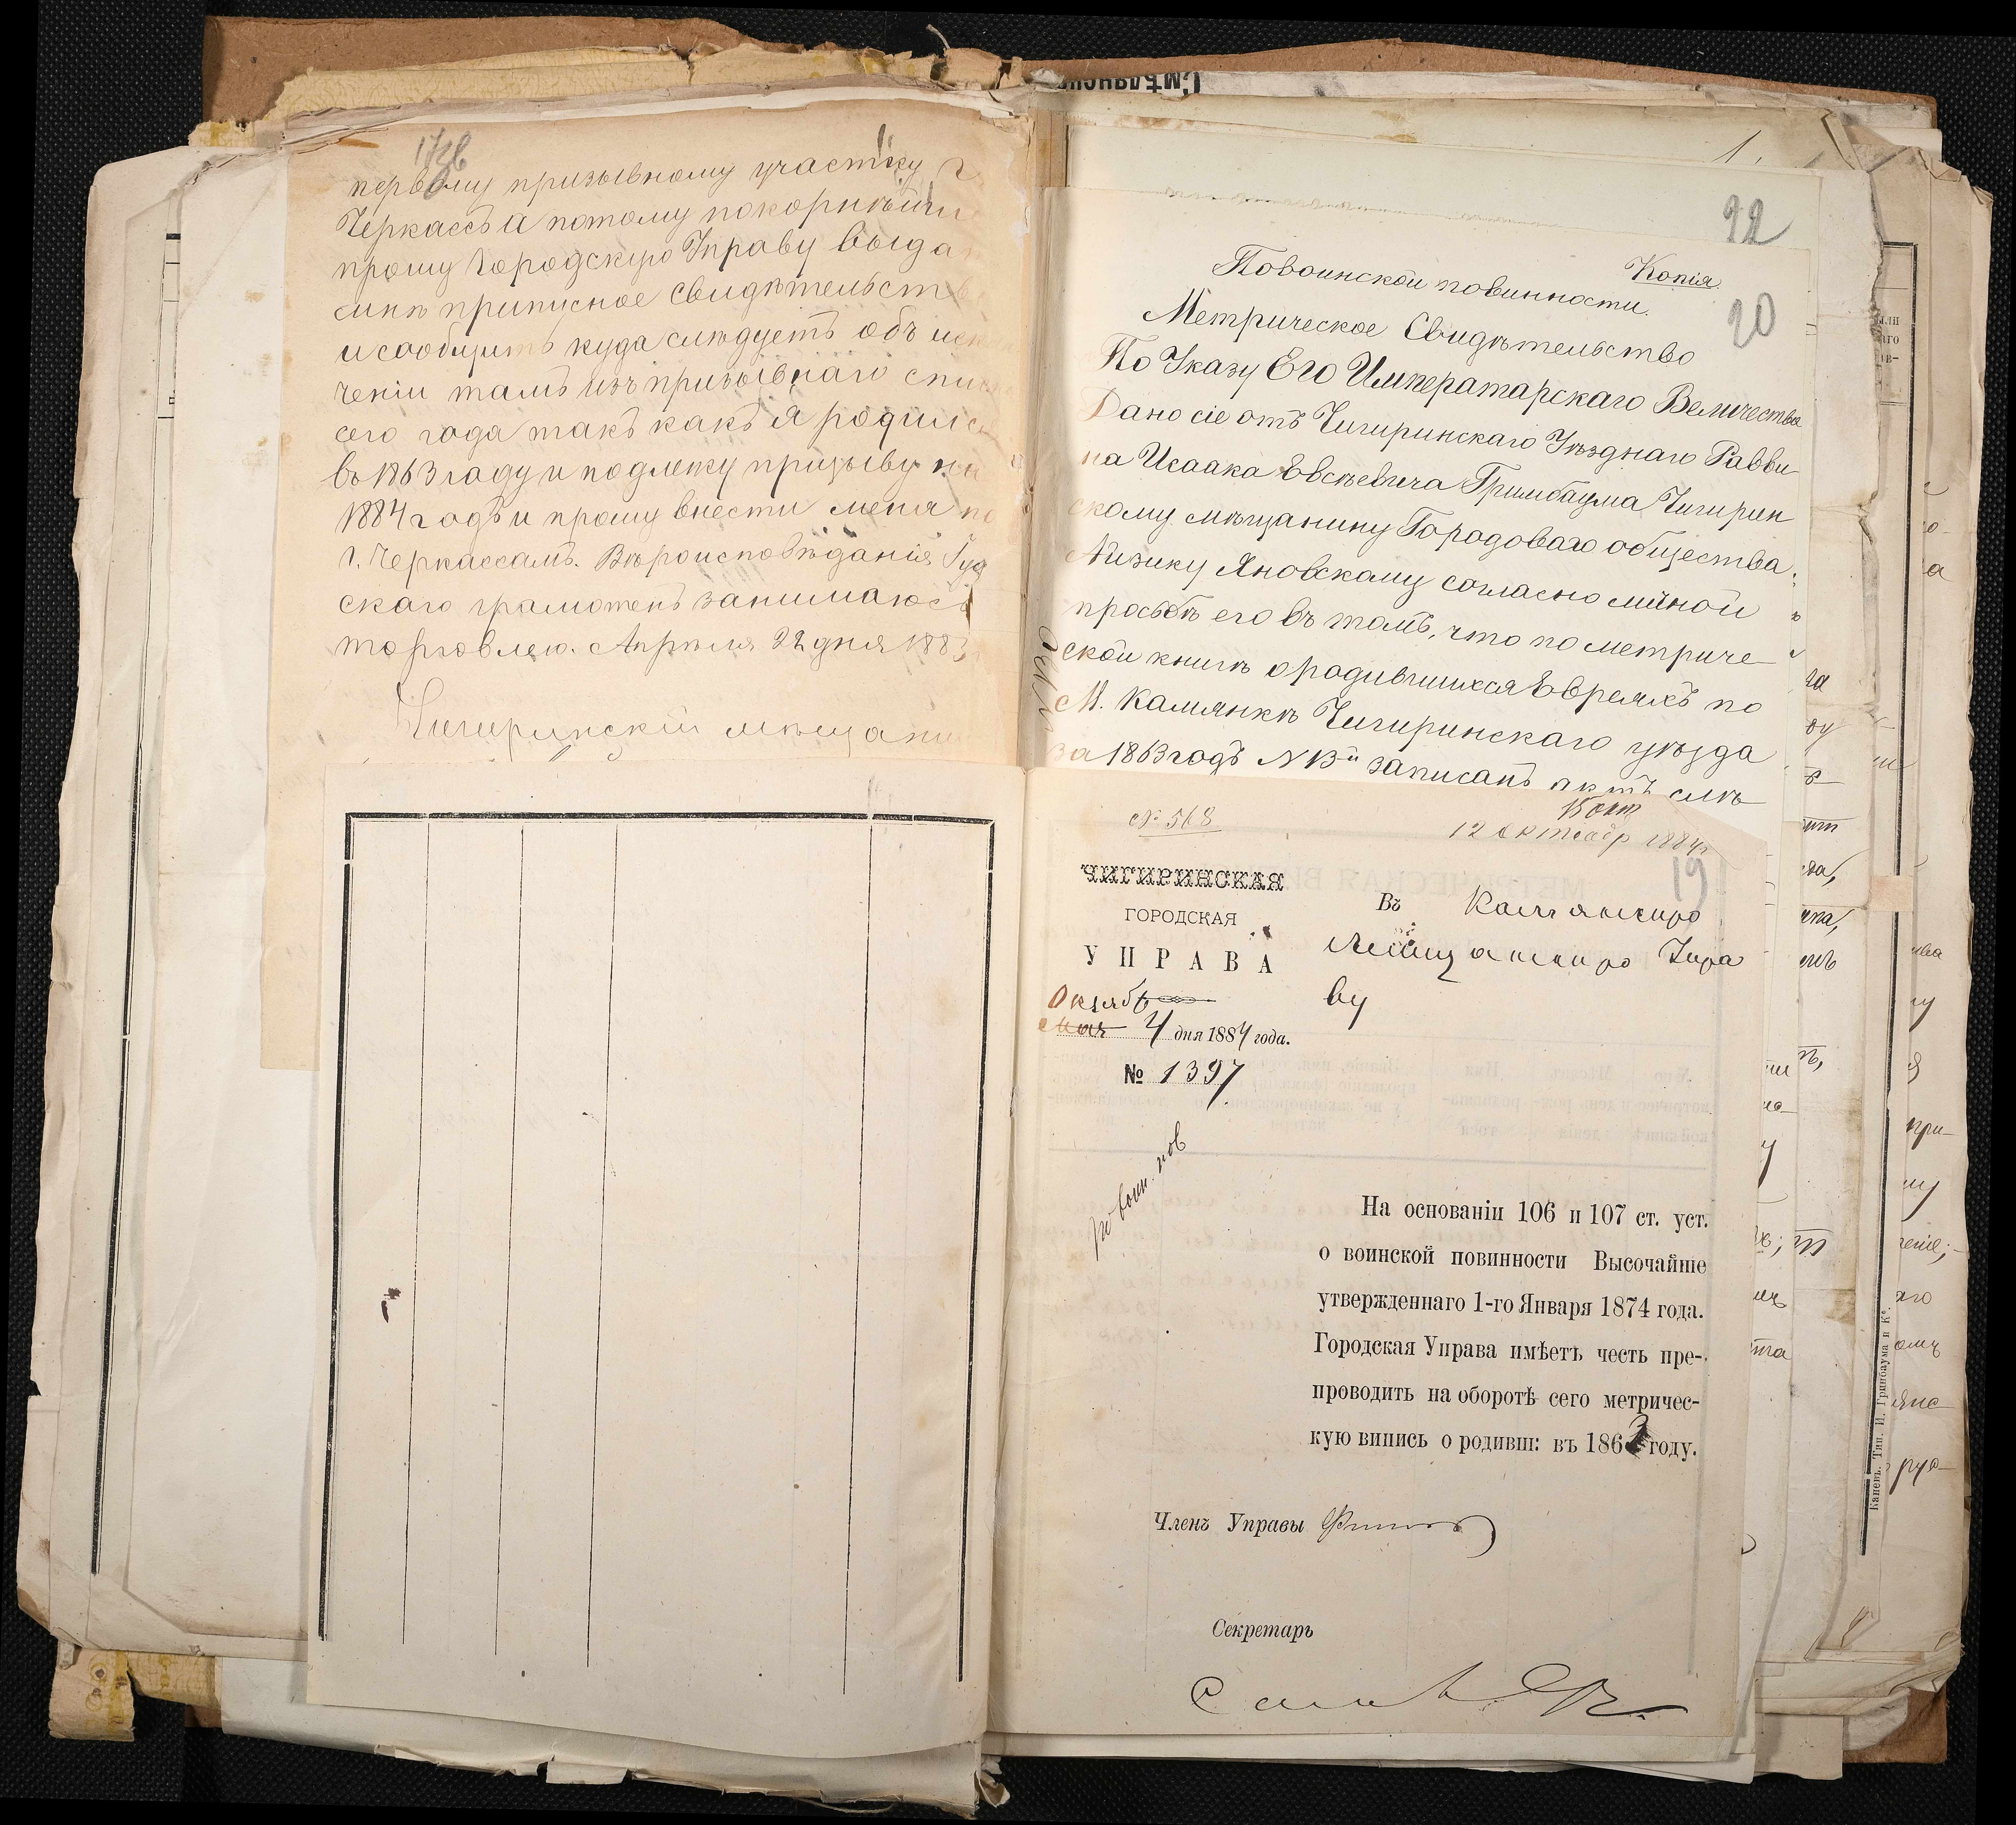 17об
первому призывному участку г
Черкассъ а потому покорнѣйши
прошу Городскую Управу выда
мнѣ приписное свидѣтельств
и сообщить куда слѣдуетъ объ иск
ченіи тамъ изъ призывнаго спис
сего года такъ какъ я родился
въ 1863 году и подлежу призыву на
1884 годъ и прошу внести меня по
г. Черкассамъ. Вѣроисповѣданія Іуд
скаго грамотенъ занимаюсь
торговлею. Апрѣля 22 дня 1883
Чигиринскій мѣщани
Смѣлянск
1.
22
Копія
20
По воинской повинности.
Метрическое Свидѣтельство
По Указу Его Императарскаго Величества
Дано сіе отъ Чигиринскаго Уѣзднаго Равви-
на Исаака Евсѣевича Гринбаума Чигирин
скому мѣщанину Городоваго общества
Айзику Яновскому согласно личной
просьбѣ его въ томъ, что по метриче-
ской книгѣ о родившихся Евреяхъ по
М. Камянкѣ Чигиринскаго уѣзда
за 1863 годъ N 13й записанъ актъ слѣ-
№ 568
15 окт
12 Октября 1884 г
19
ЧИГИРИНСКАЯ
ГОРОДСКАЯ
УПРАВА
Октяб
мая 4 дня 1884 года.
№ 1397
Въ Камянскую
Мѣщанскую Упра
ву
по воин. пов
На основаніи 106 и 107 ст. уст.
о воинской повинности Высочайше
утвержденнаго 1-го Января 1874 года.
Городская Управа имѣетъ честь пре-
проводить на оборотѣ сего метричес-
кую випись о родивш: въ 1863 году.
Членъ Управы
Секретарь
Каневъ. Тип. И. Гринбаума и Ко.